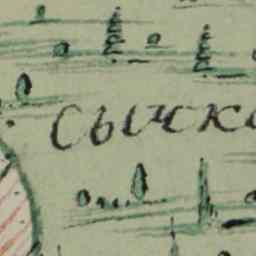 Сычко